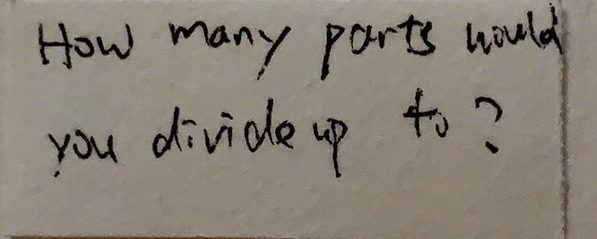 How many parts would
you divide up to?